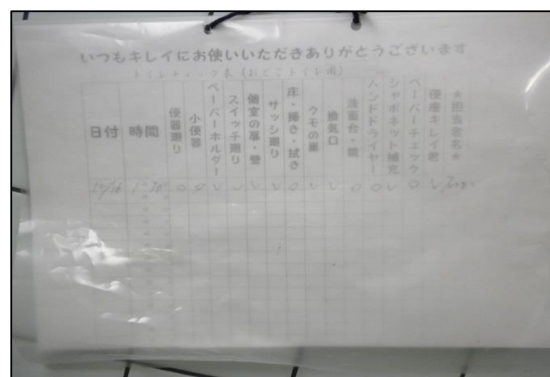 いつもキレイにお使いいただきありがとうございます
日付
時間
便器廻り
小便器
ペーパーホルダー
スイッチ廻り
個室の扉・壁
サッシ廻り
床・掃き・拭き
クモの巣
換気口
洗面台・鏡
ハンドドライヤー
シャボネット補充
ペーパーチェック
便座キレイ君
★担当者名★